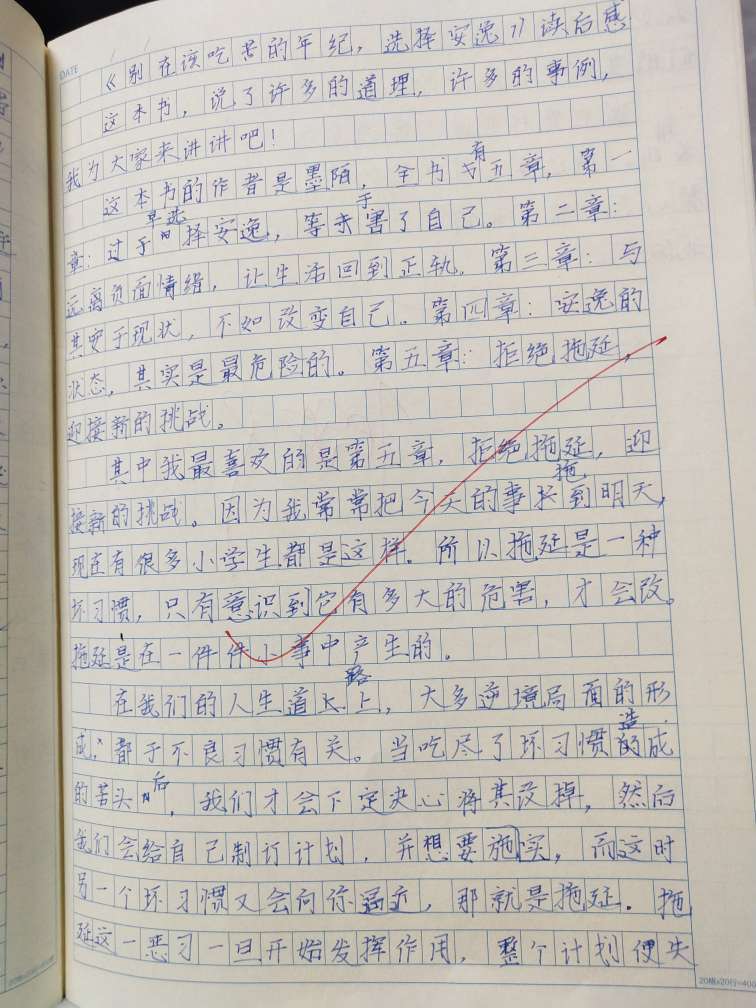 DATE
《别在该吃苦的年纪，选择安逸》读后感
这本书，说了许多的道理，许多的事例，
我为大家来讲讲吧！
这本书的作者是墨陌，全书有五章，第一
章：过于早选择安逸，等于害了自己。第二章：
远离负面情绪，让生活回到正轨。第三章：与
其安于现状，不如改变自己。第四章：安逸的
状态，其实是最危险的。第五章：拒绝拖延，
迎接新的挑战。
其中我最喜欢的是第五章，拒绝拖延，迎
接新的挑战。因为我常常把今天的事拖到明天，
现在有很多小学生都是这样。所以拖延是一种
坏习惯，只有意识到它有多大的危害，才会改。
拖延是在一件件小事中产生的。
在我们的人生道路上，大多逆境局面的形
成，都于不良习惯有关。当吃尽了坏习惯造成
的苦头后，我们才会下定决心将其改掉，然后
我们会给自己制订计划，并想要施实，而这时
另一个坏习惯又会向你逼近，那就是拖延。拖
延这一恶习一旦开始发挥作用，整个计划便失